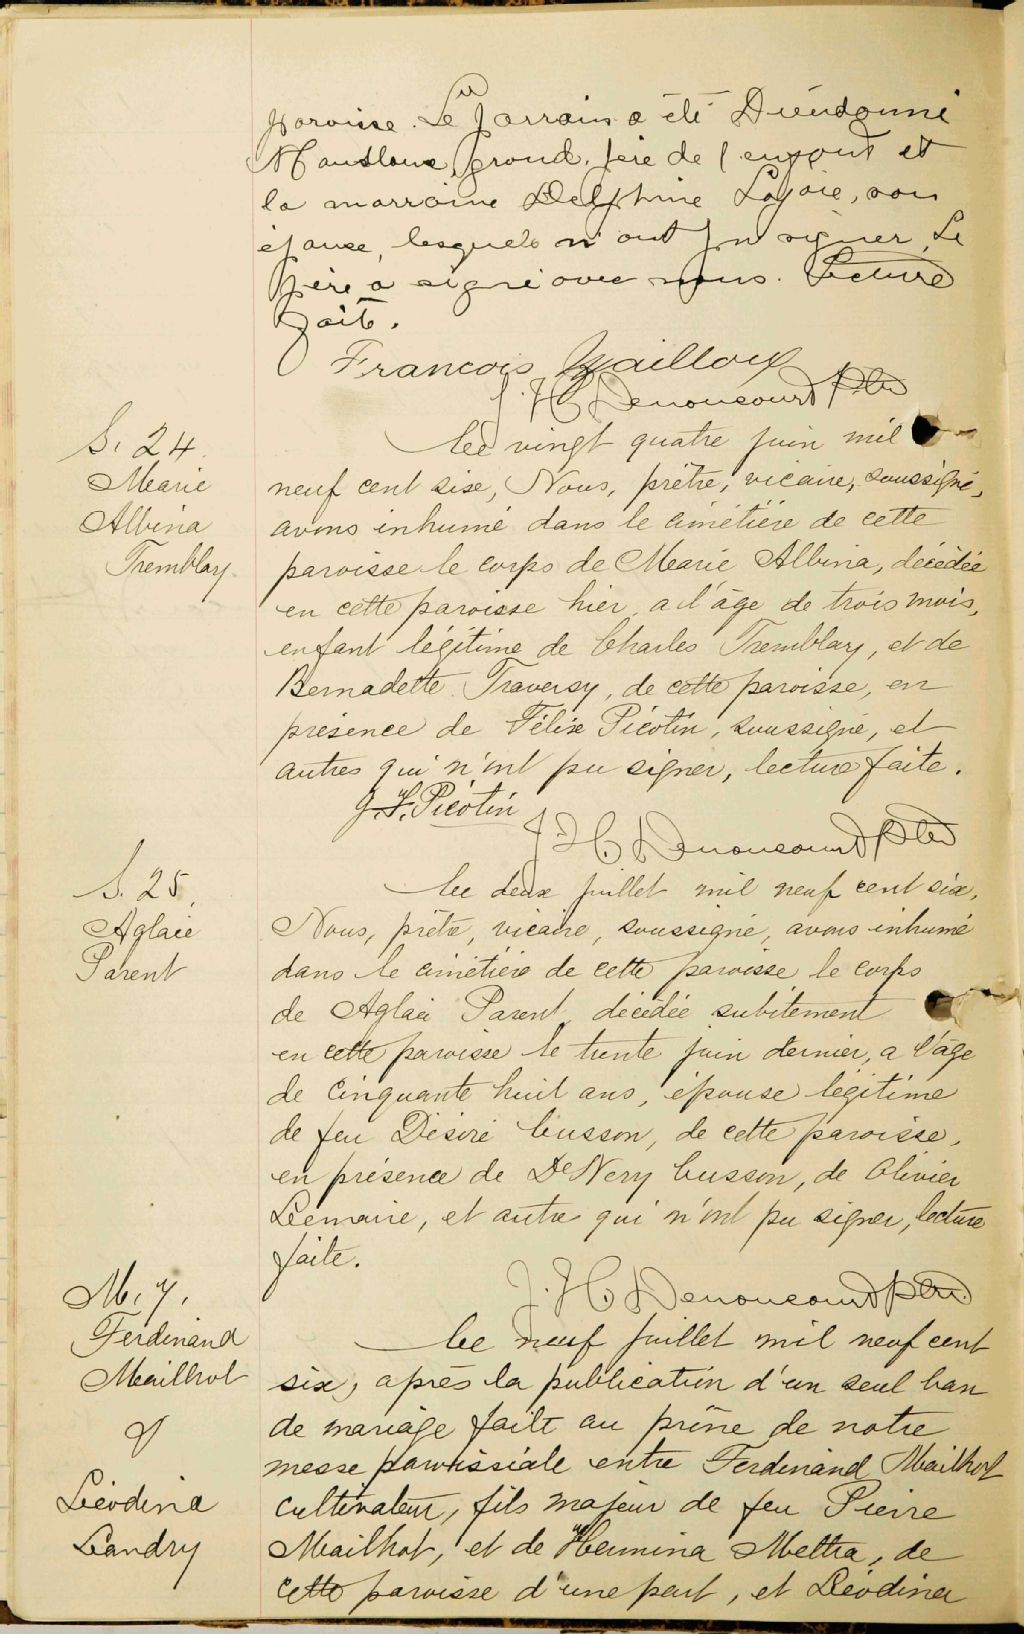 paroisse. Le parrain a été Dieudonné
grand, père de l'enfant et
la marraine Delphine Lajoie, son
épouse, lesquels n'ont pu signer. Le
père a signé avec nous. Lecture
faite.
Francois Mailloux
J. H. Denoncourt Ptre
S. 24.
Marie
Albina
Tremblay.
Le vingt quatre juin mil
neuf cent six, Nous, prêtre, vicaire, soussigné,
avons inhumé dans le cimétière de cette
paroisse le corps de Marie Albina, décédée
en cette paroisse hier, a l'âge de trois mois,
enfant légitime de Charles Tremblay, et de
Bernadette Traversy, de cette paroisse, en
présence de Félix Picotin, soussigné, et
autres qui n'ont pu signer, lecture faite.
J. F. Picotin
J. H. Denoncourt Ptre
S. 25.
Aglaée
Parent
Le deux juillet mil neuf cent six,
Nous, prêtre, vicaire, soussigné, avons inhumé
dans le cimétière de cette paroisse le corps
de Aglaé Parent, décédée subitement
en cette paroisse le trente juin dernier, a l'âge
de cinquante huit ans, épouse légitime
de feu Désiré Cusson, de cette paroisse,
en présence de De Nery Cusson, de Olivier
Lemaire, et autre qui n'ont pu signer, lecture
faite.
J. H. Denoncourt ptre
M. 7.
Ferdinand
Mailhot
&
Léodina
Landry
Le neuf juillet mil neuf cent
six, après la publication d'un seul ban
de mariage faite au prône de notre
messe paroissiale entre Ferdinand Mailhot
cultivateur, fils majeur de feu Pierre
Mailhot, et de Hermina Metha, de
cette paroisse d'une part, et Léodina